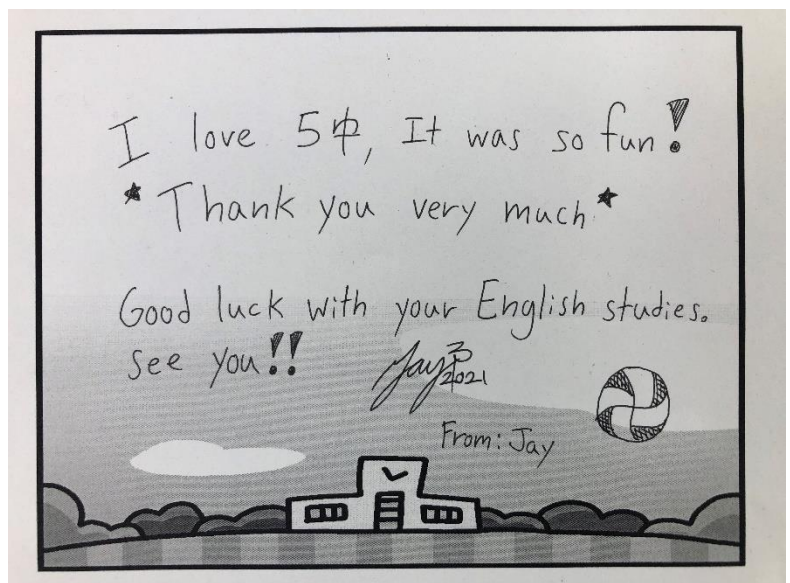 I love 5中, It was so fun!
*Thank you very much*
Good luck with your English studies.
See you!!
Jay
2021
From: Jay